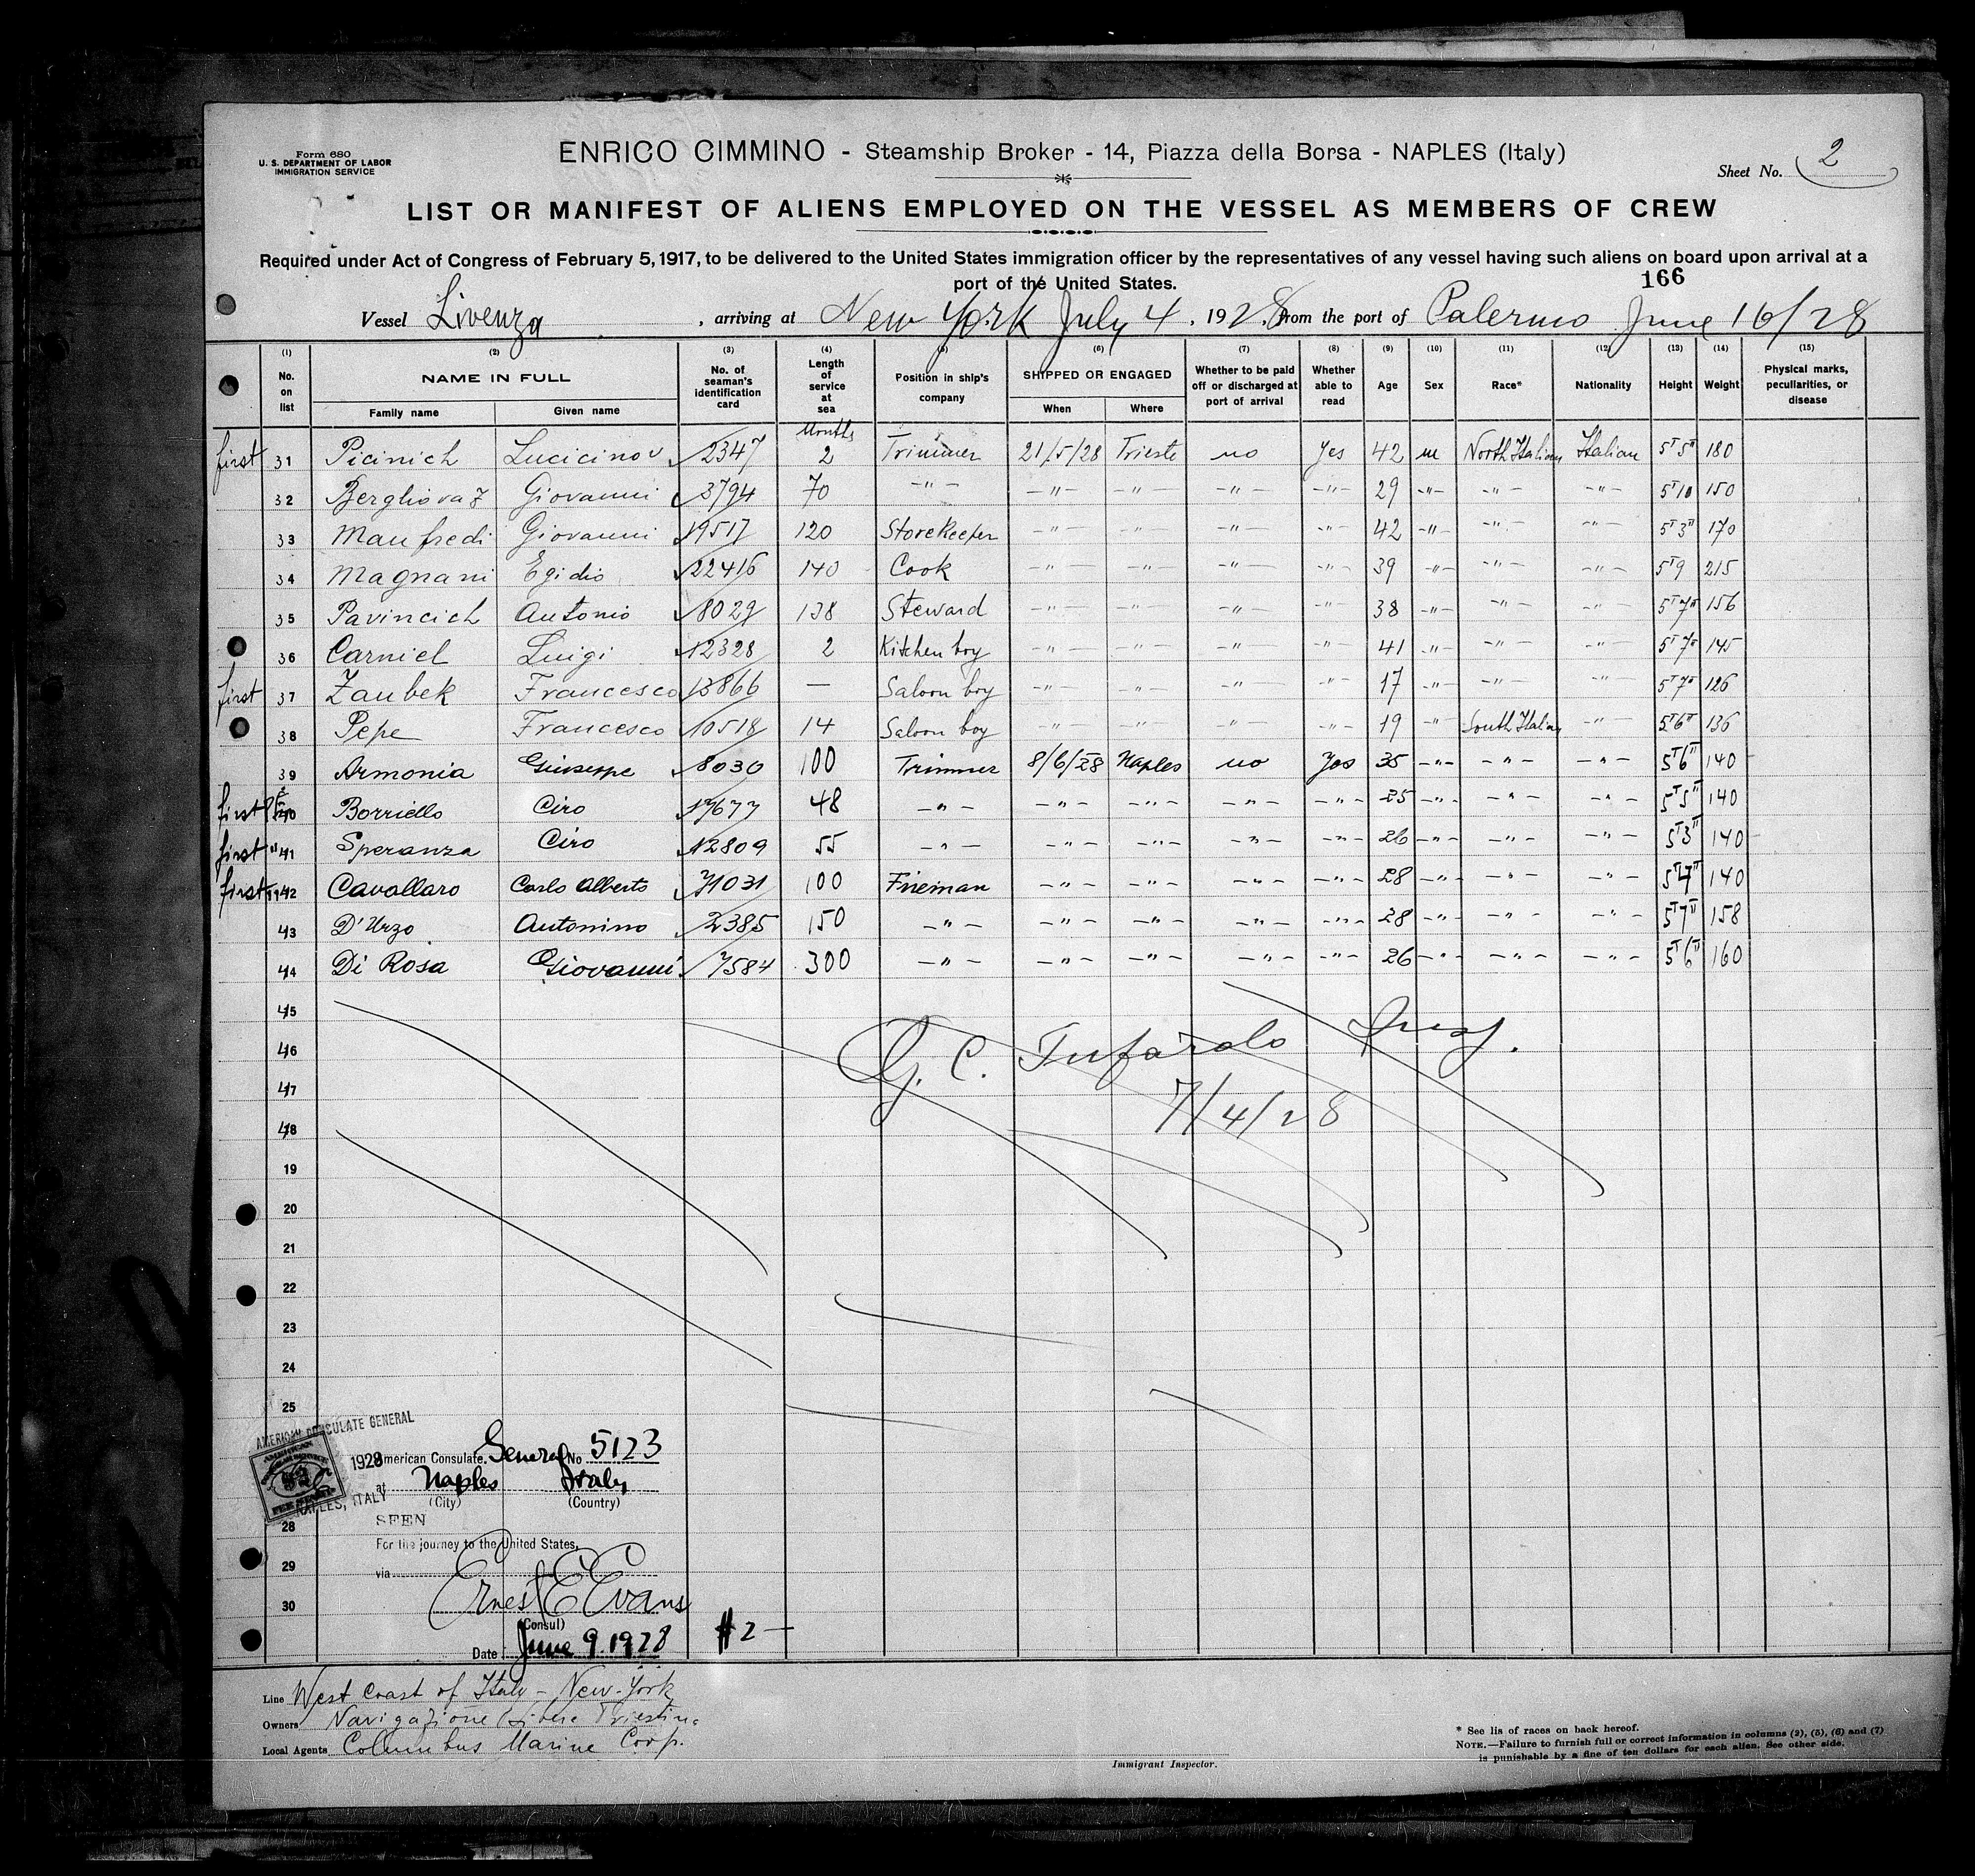 Form 680
U. S. DEPARTMENT OF LABOR
IMMIGRATION SERVICE
ENRICO CIMMINO - Steamship Broker - 14, Piazza della Borsa - NAPLES (Italy)
Sheet No. 2
LIST OR MANIFEST OF ALIENS EMPLOYED ON THE VESSEL AS MEMBERS OF CREW
Required under Act of Congress of February 5, 1917, to be delivered to the United States immigration officer by the representatives of any vessel having such aliens on board upon arrival at a
port of the United States.
166
Vessel Livenza, arriving at New York July 4, 1928, from the port of Palermo June 16/28
(1) (2) (3) (4) (5) (6) (7) (8) (9) (10) (11) (12) (13) (14) (15)
No. on list NAME IN FULL Family name Given name No. of seaman's identification card Length of service at sea Position in ship's company SHIPPED OR ENGAGED When Where Whether to be paid off or discharged at port of arrival Whether able to read Age Sex Race* Nationality Height Weight Physical marks, peculiarities, or disease
Months
first 31 Picinich 2347 2 Trimmer 21/5/28 Trieste no Yes 42 m North Italian Italian 5'5" 180
32 Giovanni 3794 70 -"- -"- -"- -"- -"- 29 -"- -"- -"- 5'10 150
33 Manfredi Giovanni 19517 120 Storekeeper -"- -"- -"- -"- 42 -"- -"- -"- 5'3" 170
34 Magnani Egidio 22416 140 Cook -"- -"- -"- -"- 39 -"- -"- -"- 5'9 215
35 Pavincich Antonio 8029 138 Steward -"- -"- -"- -"- 38 -"- -"- -"- 5'7" 156
36 Carniel Luigi 12328 2 Kitchen boy -"- -"- -"- -"- 41 -"- -"- -"- 5'7" 145
first 37 Zaubek Francesco 13866 — Saloon boy -"- -"- -"- -"- 17 -"- -"- -"- 5'7" 126
38 Pepe Francesco 10518 14 Saloon boy -"- -"- -"- -"- 19 -"- South Italian -"- 5'6" 136
39 Armonia Giuseppe 8030 100 Trimmer 8/6/28 Naples no Yes 35 -"- -"- -"- 5'6" 140
first 40 Borriello Ciro 17677 48 -"- -"- -"- -"- -"- 25 -"- -"- -"- 5'5" 140
first " 41 Speranza Ciro 12809 55 -"- -"- -"- -"- -"- 26 -"- -"- -"- 5'3" 140
first " 42 Cavallaro Carlo Alberto 71031 100 Fireman -"- -"- -"- -"- 28 -"- -"- -"- 5'7" 140
43 D'Urzo Antonino 2385 150 -"- -"- -"- -"- -"- 28 -"- -"- -"- 5'7" 158
44 Di Rosa Giovanni 7584 300 -"- -"- -"- -"- -"- 26 -"- -"- -"- 5'6" 160
45
46 G. C. Tufarolo
47
7/4/28
48
19
20
21
22
23
24
25
AMERICAN CONSULATE GENERAL
1928
NAPLES, ITALY
American Consulate General No 5123
at Naples Italy
(City) (Country)
28 SEEN
For the journey to the United States,
29 via
30 Ernest E Evans
(Consul)
Date June 9. 1928
#2 —
Line West Coast of Italy - New-York
Owners Navigazione Libera Triestina
Local Agents Columbus Marine Corp.
Immigrant Inspector.
* See lis of races on back hereof.
NOTE.—Failure to furnish full or correct information in columns (2), (5), (6) and (7)
is punishable by a fine of ten dollars for each alien. See other side.